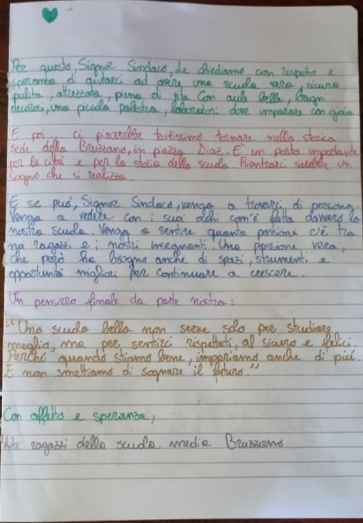 Per questo, Signor Sindaco, le chiediamo con rispetto e
speranza di aiutarci ad avere una scuola vera, sicura
pulita, attrezzata, piena di vita. Con aule belle, bagni
decorosi, una piccola palestra, laboratori dove imparare con gioia.
E poi... ci piacerebbe tantissimo tornare nella storica
sede della Bruzzano, in piazza Diaz. E' un posto importante
per la città e per la storia della scuola. Rientrarci sarebbe un
sogno che si realizza.
E se può, Signor Sindaco, venga a trovarci, di persona.
Venga a vedere con i suoi occhi com'è fatta davvero la
nostra scuola. Venga a sentire quanta passione c'è tra
noi ragazzi e i nostri insegnanti. Una passione vera,
che però ha bisogno anche di spazi, strumenti e
opportunità migliori per continuare a crescere.
Un pensiero finale da parte nostra:
"Una scuola bella non serve solo per studiare
meglio, ma per sentirci rispettati, al sicuro e felici.
Perché quando stiamo bene, impariamo anche di più.
E non smettiamo di sognare il futuro."
Con affetto e speranza,
ragazzi della scuola media Bruzzano